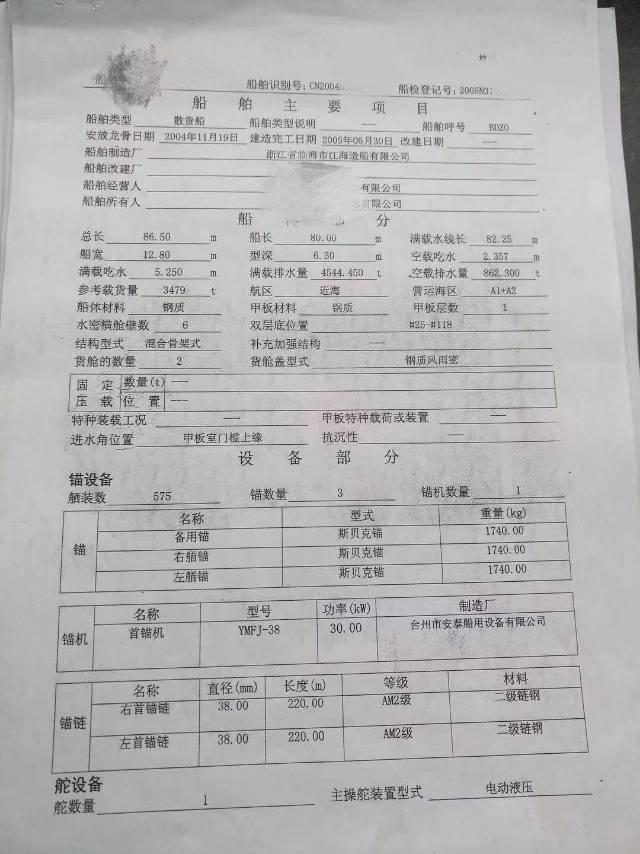 船舶识别号：CN2004 船检登记号：2005N31
船 舶 主 要 项 目
船舶类型 散货船 船舶类型说明 —— 船舶呼号 BDZO
安放龙骨日期 2004年11月19日 建造完工日期 2005年06月30日 改建日期 ——
船舶制造厂 浙江省临海市江海造船有限公司
船舶改建厂
船舶经营人 有限公司
船舶所有人 有限公司
船 部 分
总长 86.50 m 船长 80.00 m 满载水线长 82.25 m
船宽 12.80 m 型深 6.50 m 空载吃水 2.357 m
满载吃水 5.250 m 满载排水量 4544.450 t 空载排水量 862.300 t
参考载货量 3479 t 航区 近海 营运海区 A1+A2
船体材料 钢质 甲板材料 钢质 甲板层数 1
水密横舱壁数 6 双层底位置 #25-#118
结构型式 混合骨架式 补充加强结构 ——
货舱的数量 2 货舱盖型式 钢质风雨密
固 定 数量(t) ——
压 载 位 置 ——
特种装载工况 —— 甲板特种载荷或装置 ——
进水角位置 甲板室门槛上缘 抗沉性 ——
设 备 部 分
锚设备
舾装数 575 锚数量 3 锚机数量 1
锚 名称 型式 重量(kg)
备用锚 斯贝克锚 1740.00
右艏锚 斯贝克锚 1740.00
左艏锚 斯贝克锚 1740.00
锚机 名称 型号 功率(kW) 制造厂
首锚机 YMFJ-38 30.00 台州市安泰船用设备有限公司
锚链 名称 直径(mm) 长度(m) 等级 材料
右首锚链 38.00 220.00 AM2级 二级链钢
左首锚链 38.00 220.00 AM2级 二级链钢
舵设备
舵数量 1 主操舵装置型式 电动液压